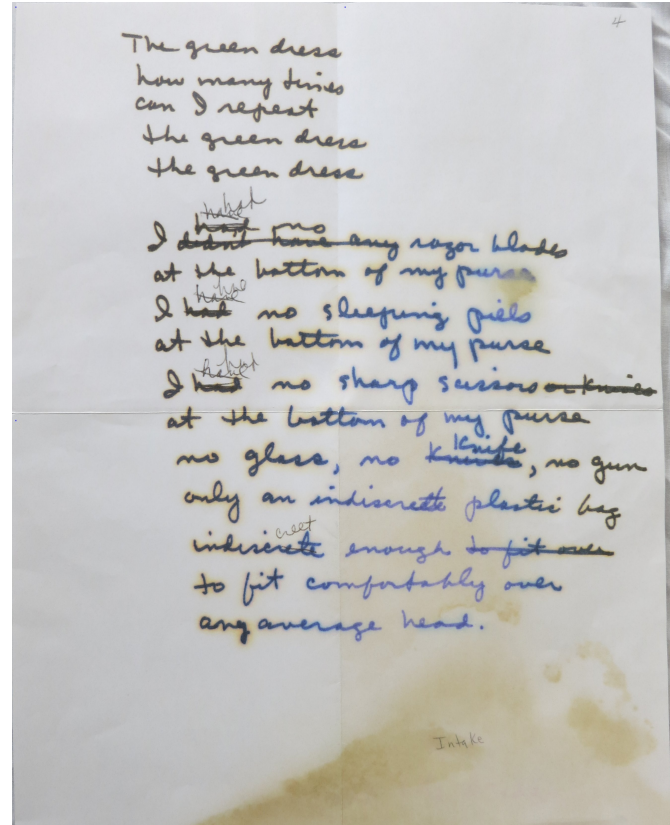 4
The green dress
how many times
can I repeat
the green dress
the green dress
have had
had no
I didn't have any razor blades
at the bottom of my purse
have had
I had no sleeping pills
at the bottom of my purse
have had
I had no sharp scissors or knives
at the bottom of my purse
knife
no glass, no knives, no gun
only an indiscrete plastic bag
creet
indiscrete enough to fit over
to fit comfortably over
any average head.
Intake